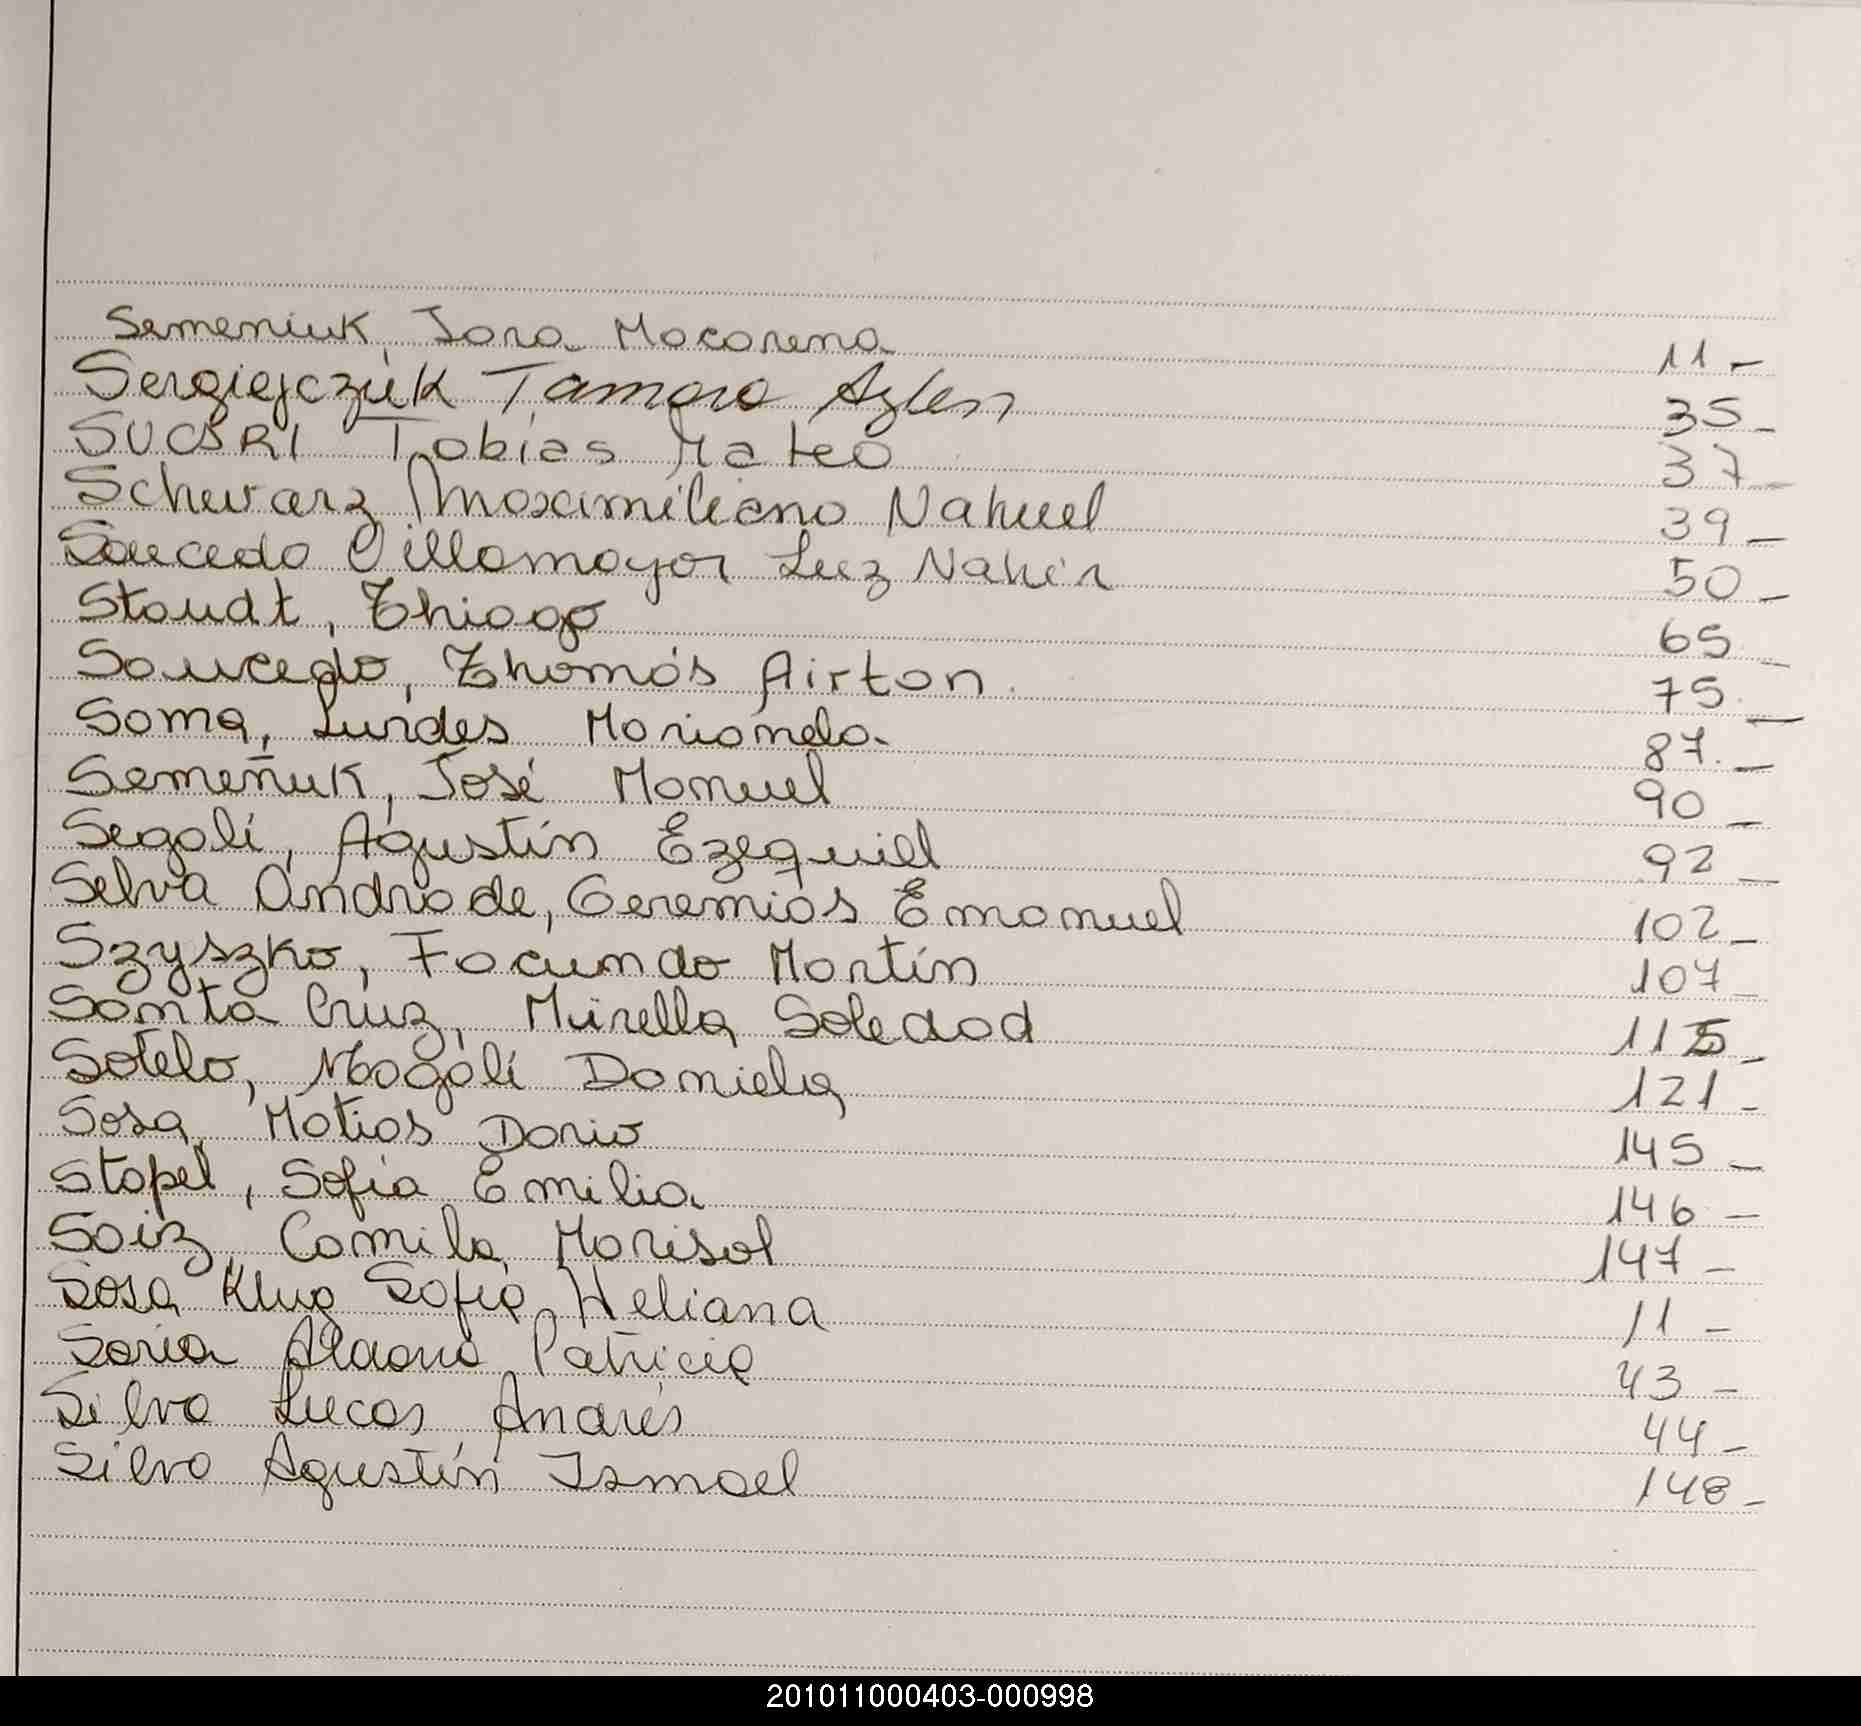 Semeniuk, Jara Macarena 11 -
Sergiejczuk Tamara Aylen 35 -
SUCSRI Tobias Mateo 37 -
Schwarz Maximiliano Nahuel 39 -
Saucedo Villamayor Luz Nahir 50 -
Staudt, Thiago 65 -
Saucedo, Thomás Airton 75 -
Soma, Lurdes Marianela 87. -
Semeñuk, José Manuel 90 -
Segali, Agustín Ezequiel 92 -
Selva Andrade, Geremias Emanuel 102 -
Szyszko, Facundo Martín 107 -
Santa Cruz, Mirella Soledad 115 -
Sotelo, Magalí Daniela 121 -
Sosa, Matias Dario 145 -
Stapel, Sofia Emilia 146 -
Saiz, Camila Marisol 147 -
Sosa Klug Sofia Heliana 11 -
Soria Aldana Patricia 43 -
Silva Lucas Andrés 44 -
Silva Agustín Ismael 148 -
201011000403-000998